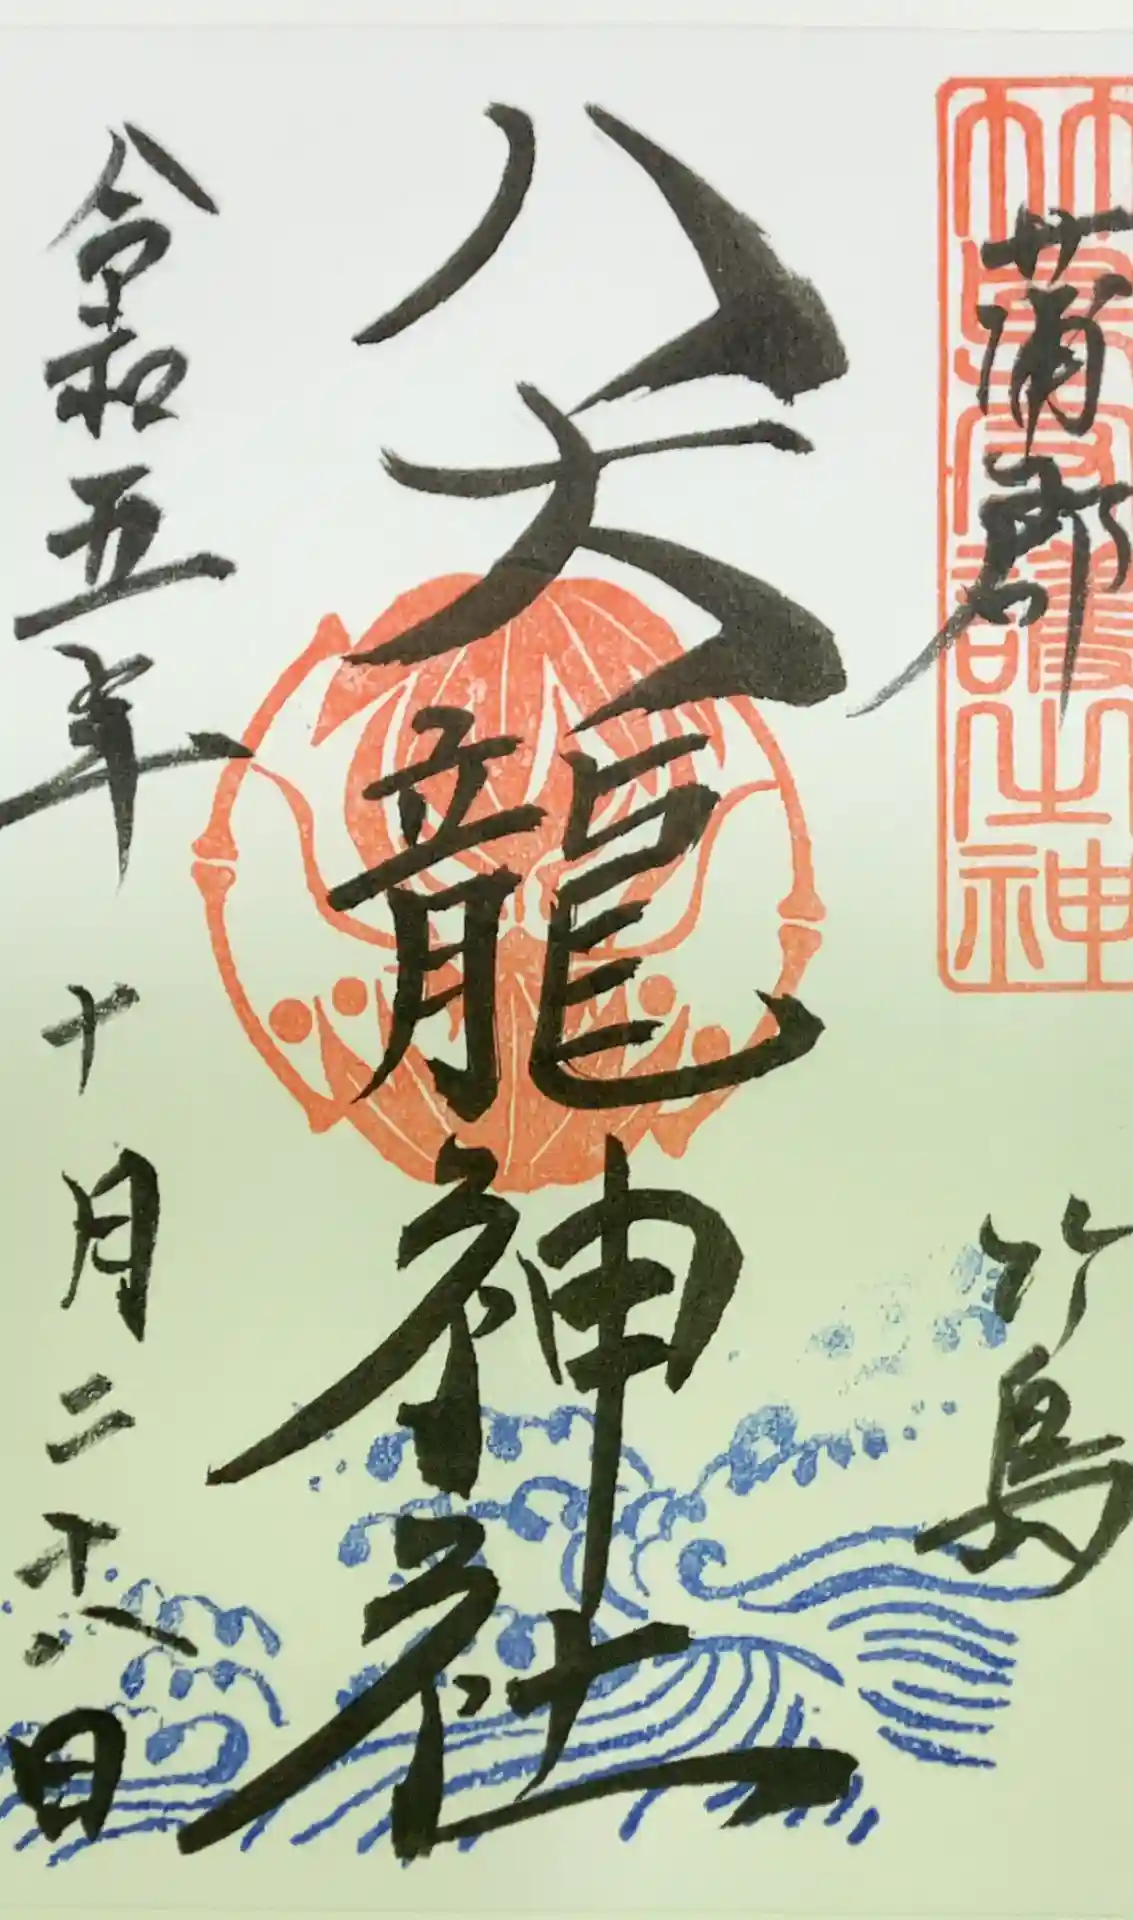 蒲郡
竹島
八大龍神社
令和五年十月二十八日